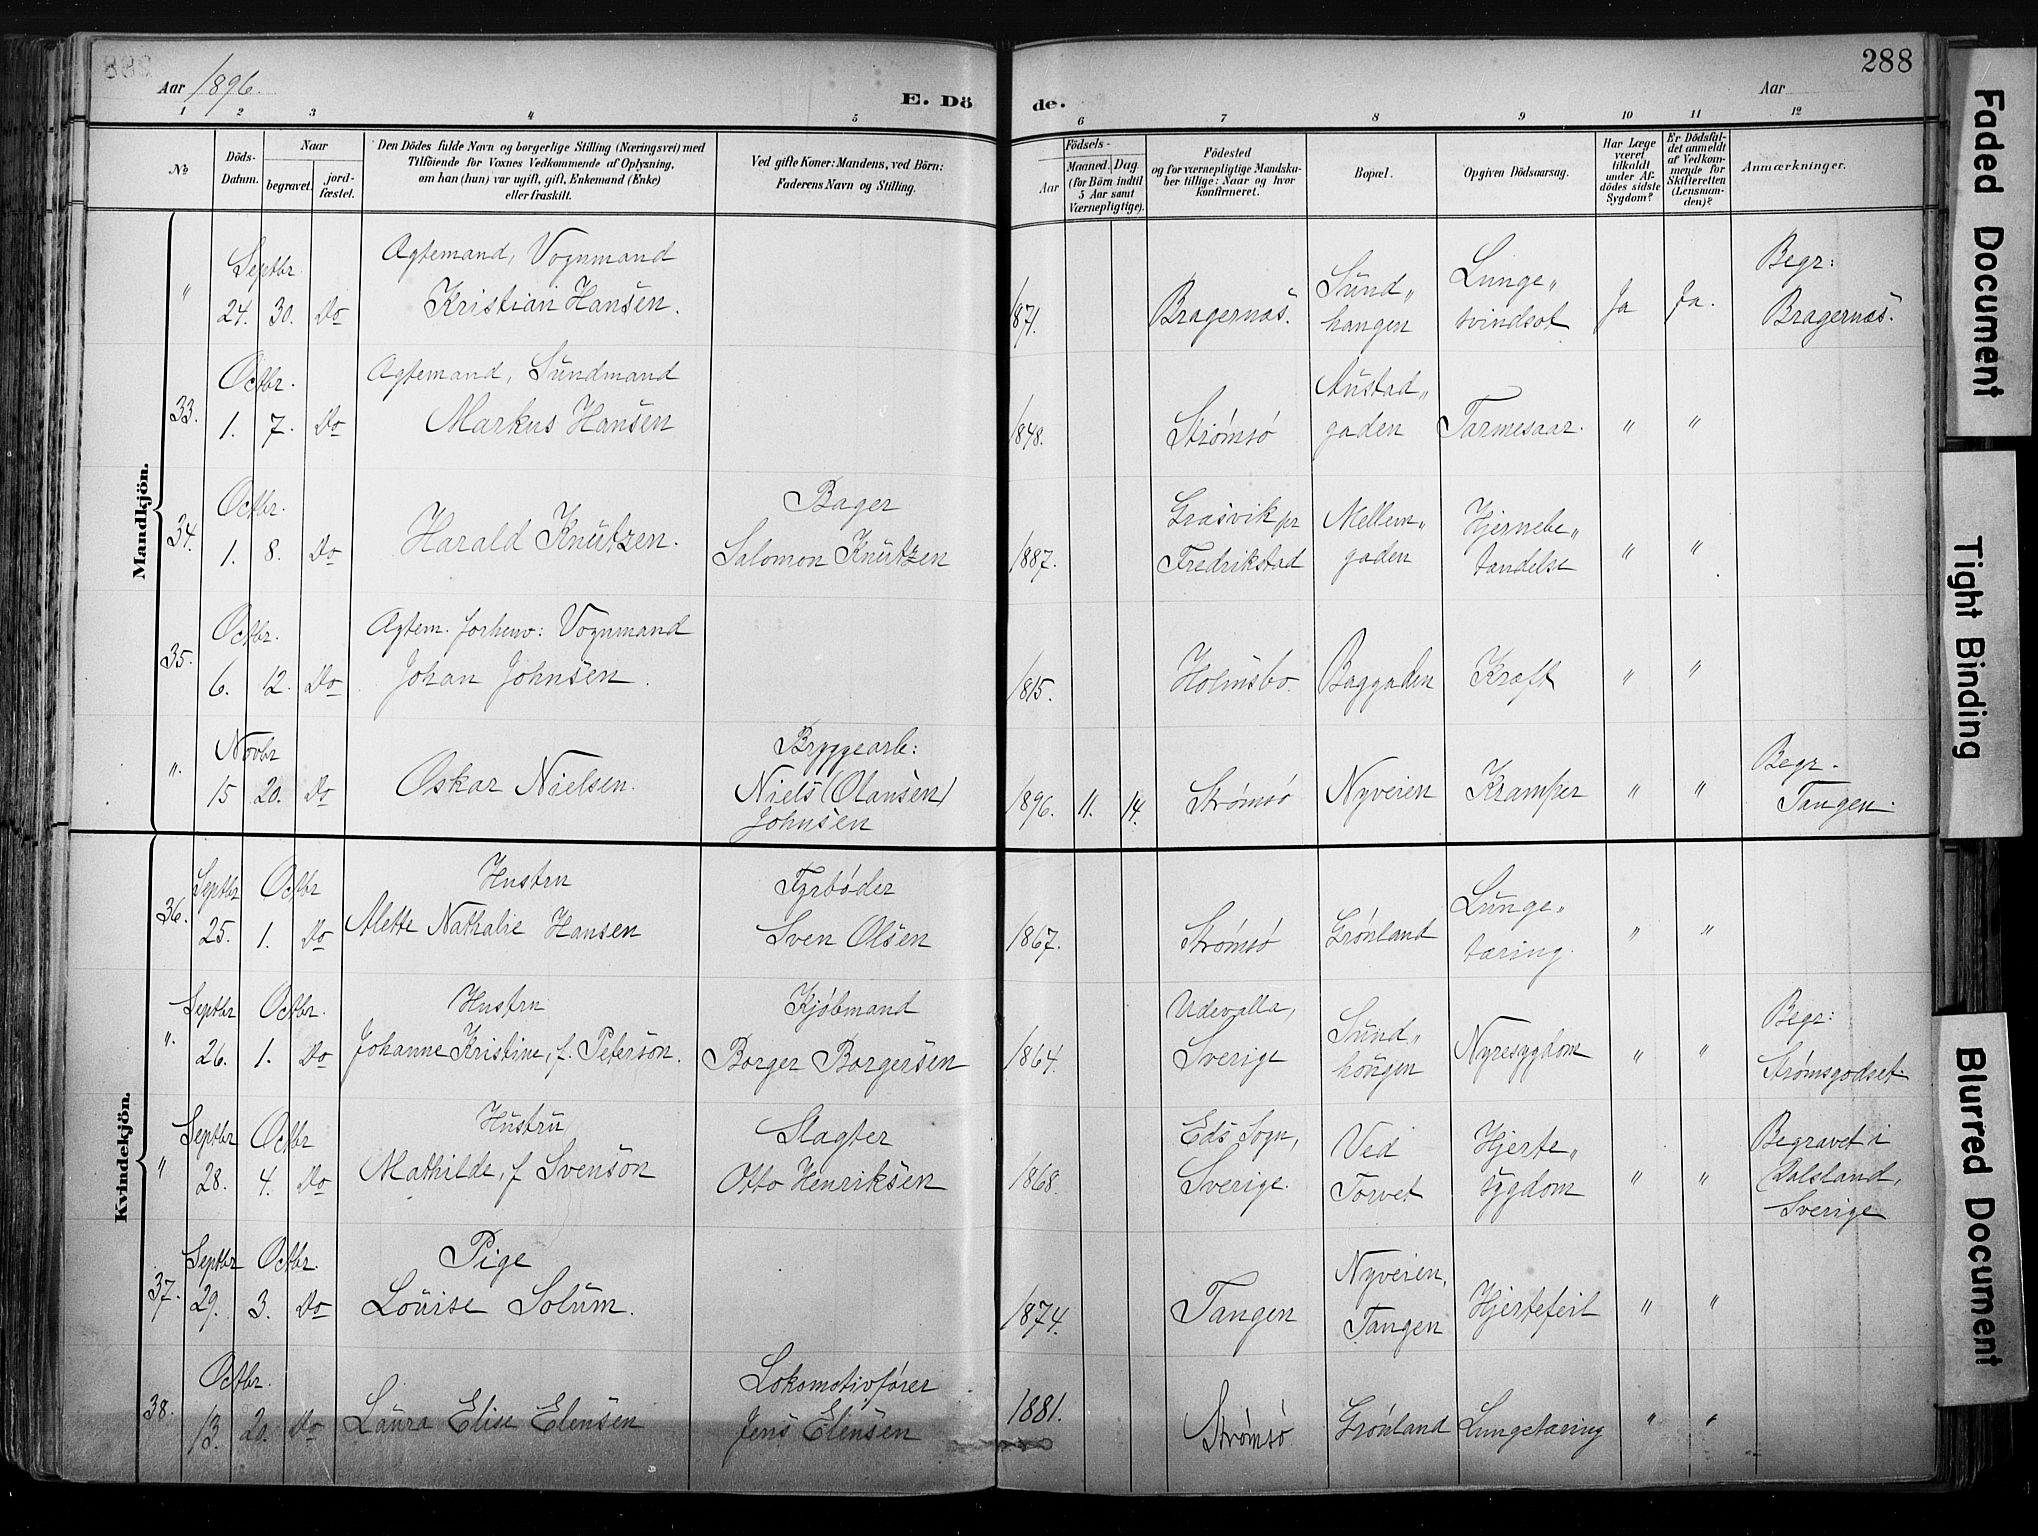 888
Aar 1896.
E. Dö de.
Aar
288
1 2 3 4 5 6 7 8 9 10 11 12
No
Döds-Datum.
Naar
begravet.
jord-fæstet.
Den Dödes fulde Navn og borgerlige Stilling (Næringsvei) med
Tilföiende for Voxnes Vedkommende af Oplysning,
om han (hun) var ugift, gift, Enkemand (Enke)
eller fraskilt.
Ved gifte Koner: Mandens, ved Börn:
Faderens Navn og Stilling.
Födsels-
Aar
Maaned. Dag.
(for Börn indtil
5 Aar samt
Værnepligtige).
Födested
og for værnepligtige Mandsku-
ber tillige: Naar og hvor
konfirmeret.
Bopæl.
Opgiven Dödsaarsag.
Har Læge
været
tilkaldt
under Af-
dödes sidste
Sygdom?
Er Dödsfal-
det anmeldt
af Vedkom-
mende for
Skifteretten
(Lensman-
den)?
Anmærkninger.
Mandkjön.
Septbr Agtemand, Vognmand Sund„ Lunge„ Begr:
" 24. 30. Do Kristian Hansen. 1871. Bragernæs. haugen svindsot Ja Ja. Bragernæs.
Octbr. Agtemand, Sundmand Austad„
33. 1. 7. Do Markus Hansen 1848. Strømsø gaden Tarmesaar. " "
Octbr. Bager Græsvik pr Mellem„ Hjernebe„
34. 1. 8. Do Harald Knutzen. Salomon Knutzen 1887. Fredrikstad gaden tændelse " "
Octbr. Agtem. forhenv: Vognmand
35. 6. 12. Do Johan Johnsen. 1815. Holmsbo. Baggaden Kræft " "
Novbr Bryggearb: Begr.
". 15 20. Do Oskar Nielsen. Niels (Olausen) 1896. 11. 14. Strømsø Nyveien Kramper " " Tangen.
Johnsen
Kvindekjön.
Septbr Octbr Hustru Fyrbøder Lunge„
36. 25. 1. Do Alette Nathalie Hansen Sven Olsen 1867. Strømsø Grønland tæring. " "
Septbr Octbr. Hustru Kjøbmand Udevalla, Sund„ Begr:
". 26. 1. Do Johanne Kristine, f. Peterson. Borger Borgersen 1864. Sverige haugen Nyresygdom " " Strømsgodset.
Septbr Octbr Hustru Slagter Eds Sogn, Ved Hjerte„ Begravet i
" 28. 4. Do Mathilde, f Svenson Otto Henriksen 1868. Sverige. Torvet sygdom " " Dalsland,
Sverige
Septbr Octbr. Pige Nyveien,
37. 29. 3. Do Louise Solum. 1874. Tangen Tangen Hjertefeil " "
Octbr. Lokomotivfører
38. 13. 20. Do Laura Elise Elensen Jens Elensen 1881. Strømsø Grønland Lungetæring " "
Faded Document
Tight Binding
Blurred Document